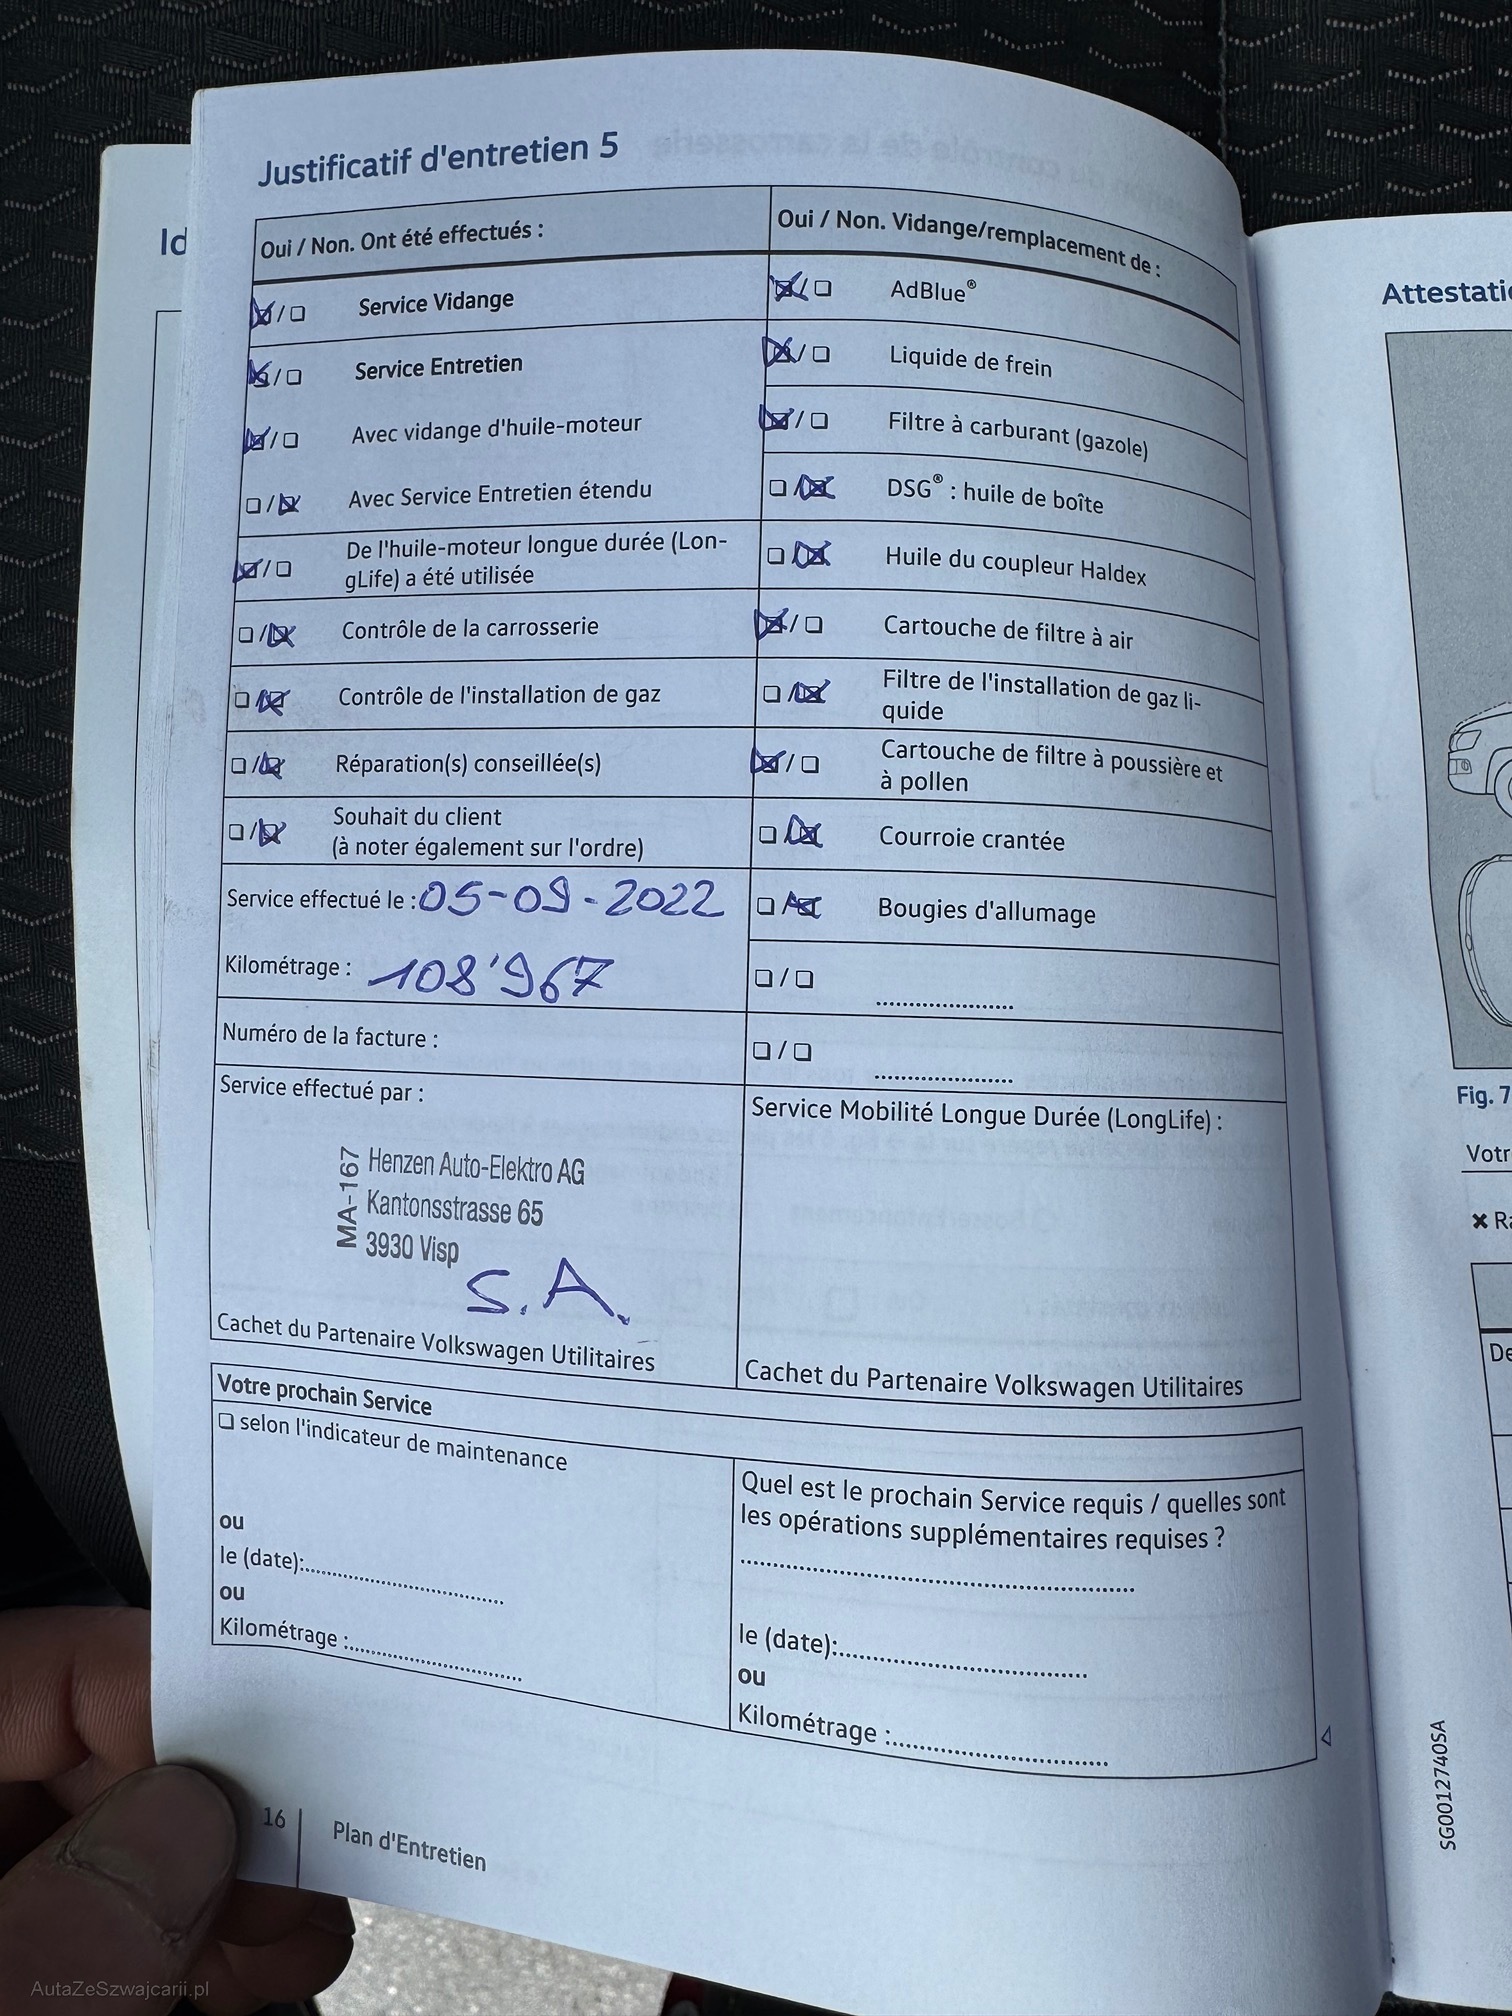 Justificatif d'entretien 5
Oui / Non. Ont été effectués :
Service Vidange
Service Entretien
Avec vidange d'huile-moteur
Avec Service Entretien étendu
De l'huile-moteur longue durée (Lon-
gLife) a été utilisée
Contrôle de la carrosserie
Contrôle de l'installation de gaz
Réparation(s) conseillée(s)
Souhait du client
(à noter également sur l'ordre)
Service effectué le : 05-09-2022
Kilométrage : 108'967
Numéro de la facture :
Service effectué par :
MA-167
Henzen Auto-Elektro AG
Kantonsstrasse 65
3930 Visp
S.A.
Cachet du Partenaire Volkswagen Utilitaires
Oui / Non. Vidange/remplacement de :
AdBlue®
Liquide de frein
Filtre à carburant (gazole)
DSG® : huile de boîte
Huile du coupleur Haldex
Cartouche de filtre à air
Filtre de l'installation de gaz li-
quide
Cartouche de filtre à poussière et
à pollen
Courroie crantée
Bougies d'allumage
Service Mobilité Longue Durée (LongLife) :
Cachet du Partenaire Volkswagen Utilitaires
Votre prochain Service
selon l'indicateur de maintenance
ou
le (date):
ou
Kilométrage :
Quel est le prochain Service requis / quelles sont
les opérations supplémentaires requises ?
le (date):
ou
Kilométrage :
16
Plan d'Entretien
Id
Attestati
Fig. 7
Votr
Ra
De
SG0012740SA
AutaZeSzwajcarii.pl